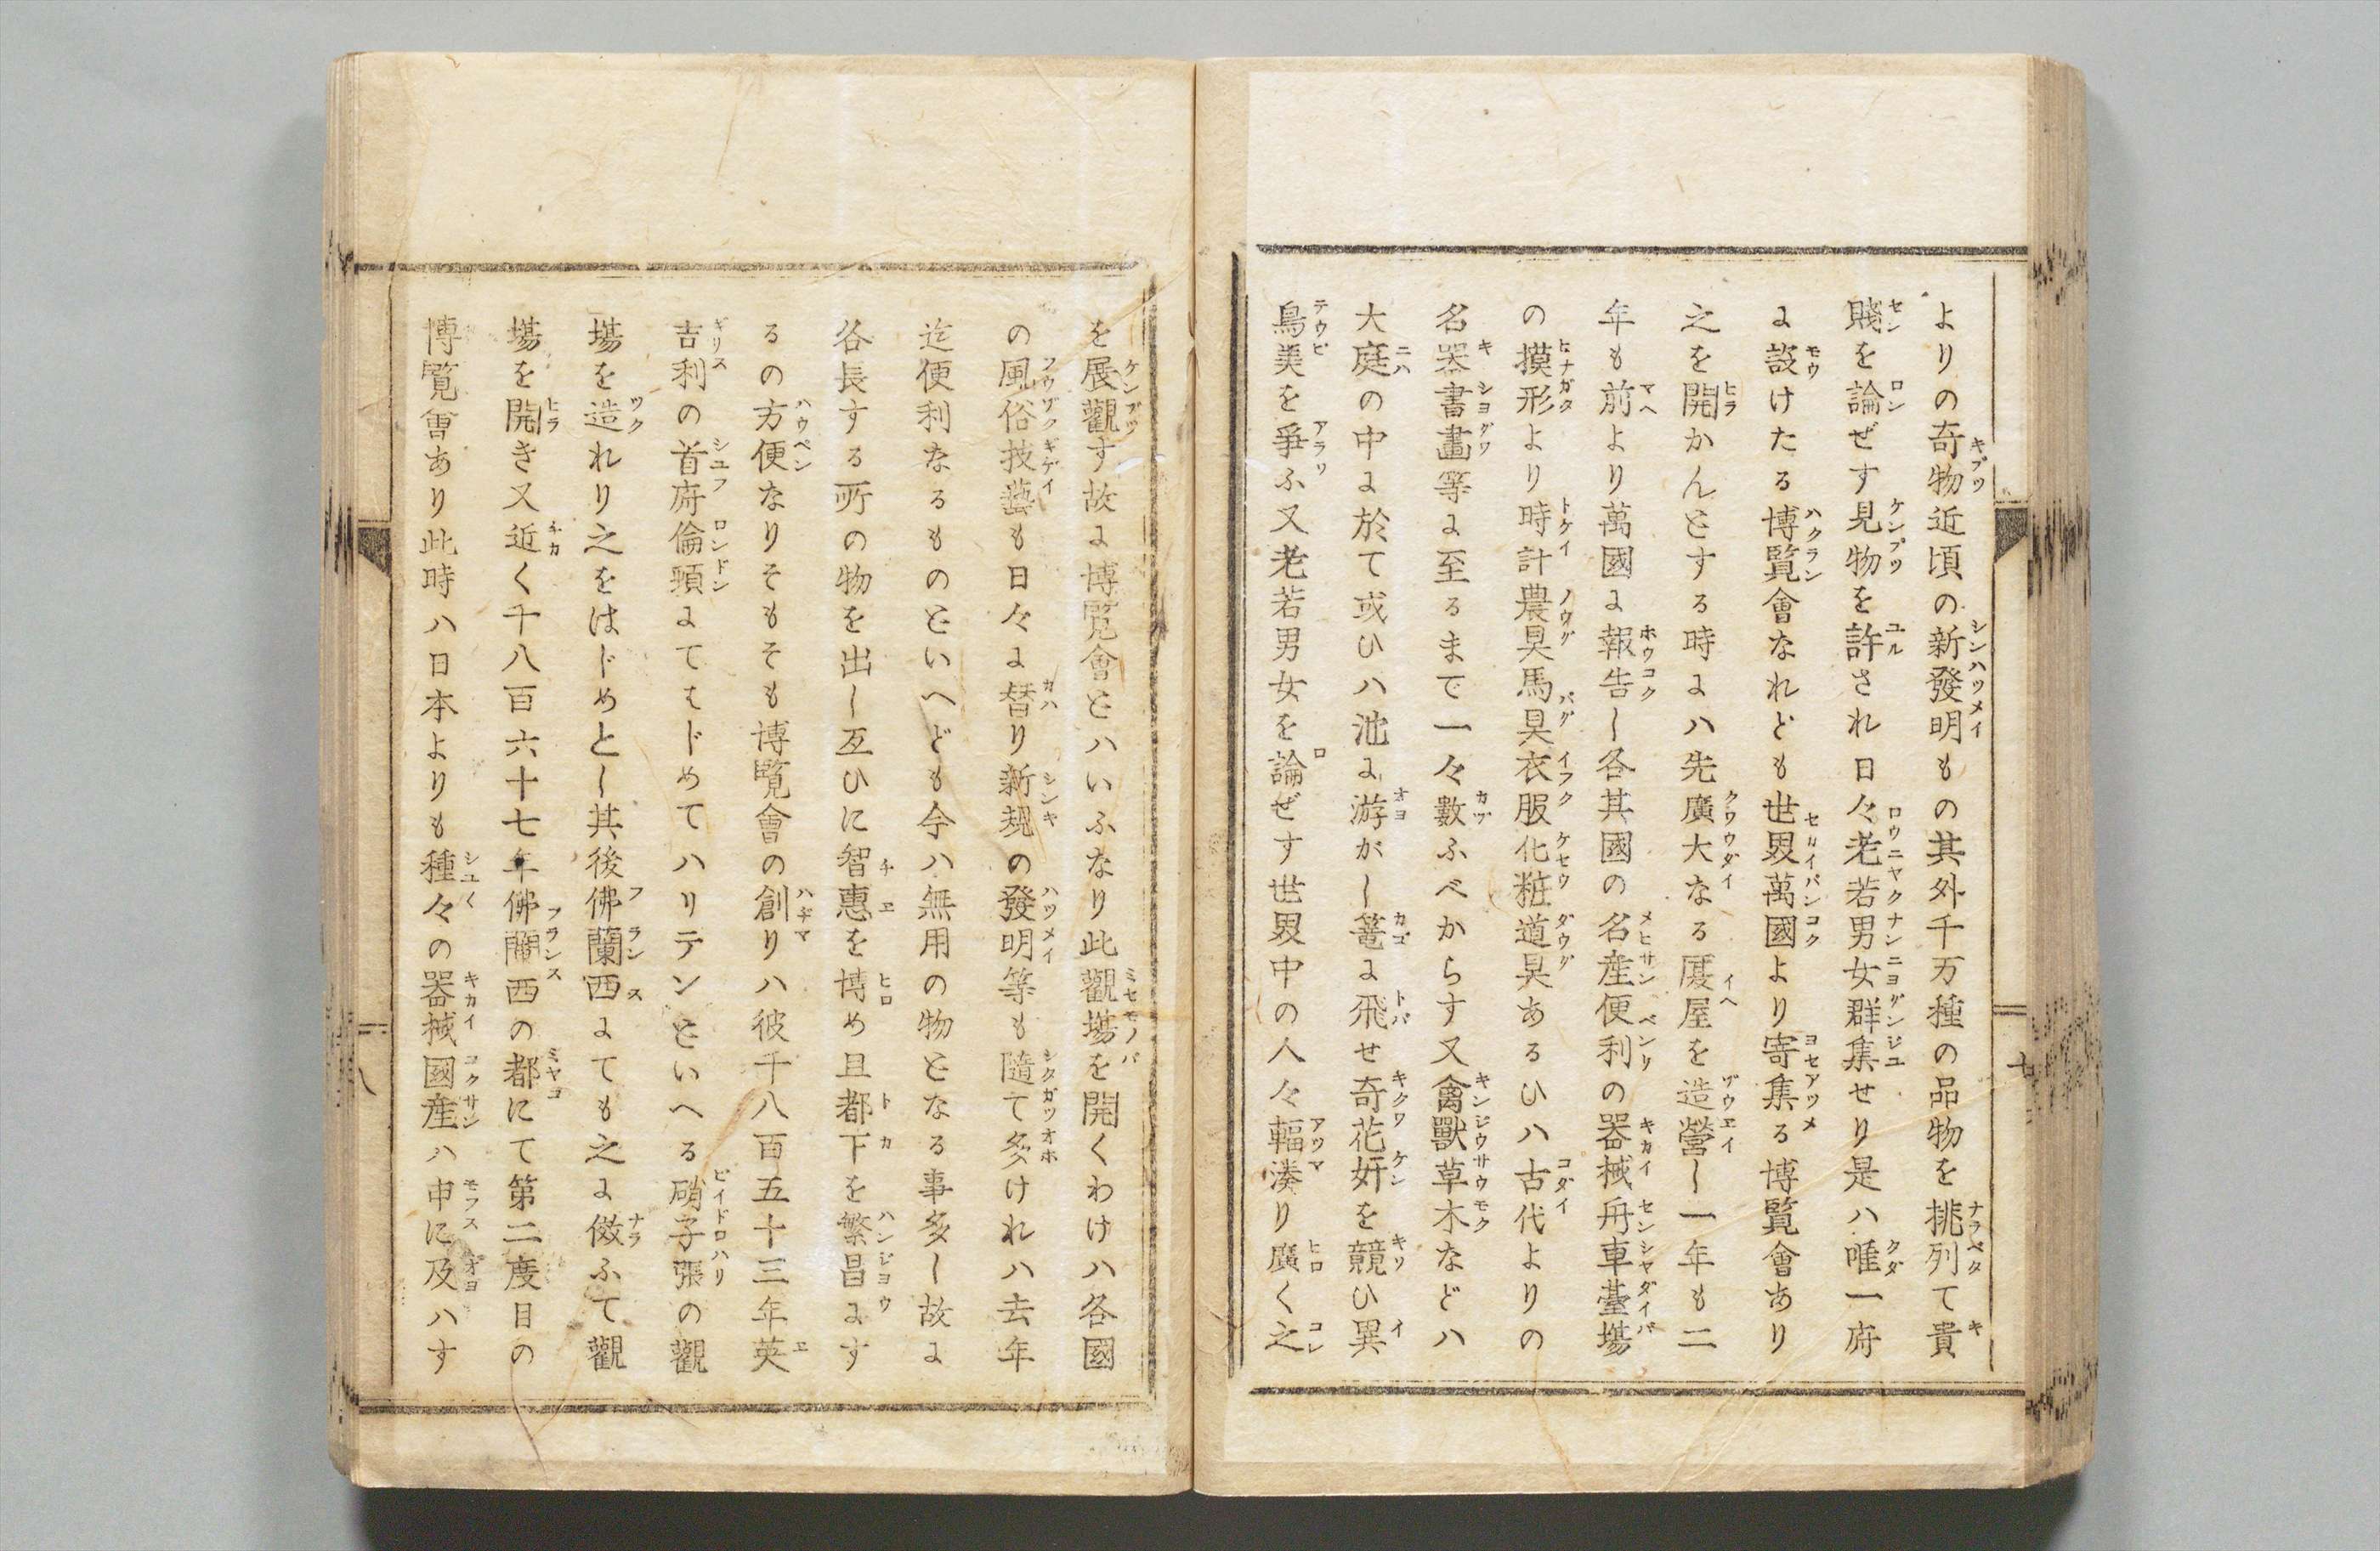 よりの奇物近頃の新發明もの其外千万種の品物を排列て貴
賤を論ぜす見物を許され日々老若男女群集せり是ハ唯一府
に設けたる博覧會なれども世界萬國より寄集る博覧會あり
之を開かんとする時にハ先廣大なる厦屋を造營し一年も二
年も前より萬國に報告し各其國の名産便利の器械舟車臺塲
の摸形より時計農具馬具衣服化粧道具あるひハ古代よりの
名器書畫等に至るまで一々數ふべからす又禽獸草木などハ
大庭の中に於て或ひハ池に游がし篭に飛せ奇花妍を競ひ異
鳥美を爭ふ又老若男女を論ぜす世界中の人々輻湊り廣く之
を展觀す故に博覧會とハいふなり此觀塲を開くわけハ各國
の風俗技藝も日々に替り新規の發明等も隨て多けれハ去年
迄便利なるものといへども今ハ無用の物となる事多し故に
各長する所の物を出し互ひに智惠を博め且都下を繁昌にす
るの方便なりそもそも博覧會の創りハ彼千八百五十三年英
吉利の首府倫頓にてはじめてハリテンといへる硝子張の觀
塲を造れり之をはじめとし其後佛蘭西にても之に傚ふて觀
塲を開き又近く千八百六十七年佛蘭西の都にて第二度目の
博覧會あり此時ハ日本よりも種々の器械國産ハ申に及ハす
七
八